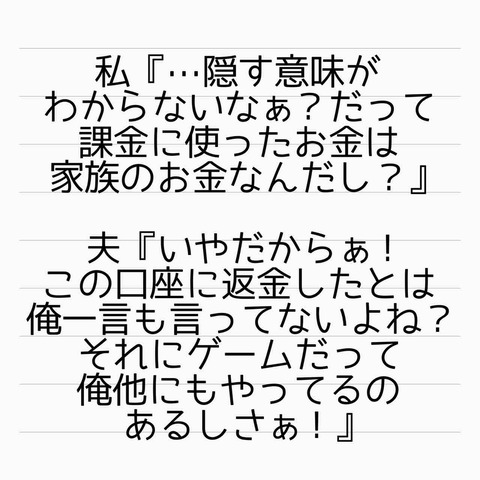 私『…隠す意味が
わからないなぁ？だって
課金に使ったお金は
家族のお金なんだし？』
夫『いやだからぁ！
この口座に返金したとは
俺一言も言ってないよね？
それにゲームだって
俺他にもやってるの
あるしさぁ！』